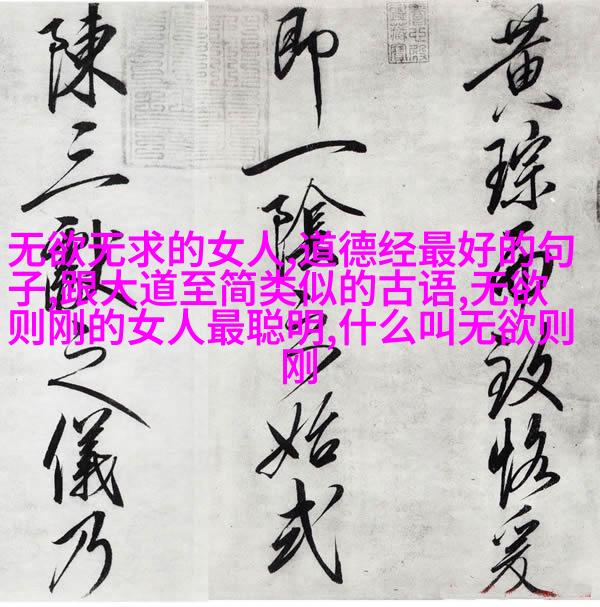 黄琮而致恪爰
即一陰之始式
陳三獻之儀乃
无欲无求的女人,道德经最好的句
子,跟大道至简类似的古语,无欲
则刚的女人最聪明,什么叫无欲则
刚